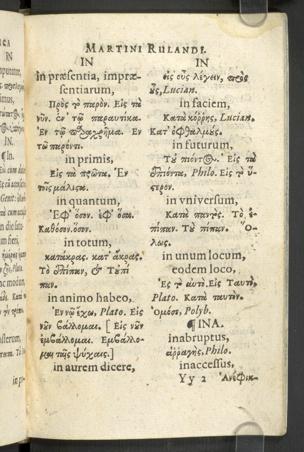 MARTINI RULANDI.
IN
in præsentia, impræ-
sentiarum,
Πρὸς τὸ παρόν. Εἰς τὸ
νῦν. ἐν τῷ παραυτίκα.
Ἐν τῷ παραχρῆμα. Ἐν
τῷ παρόντι.
in primis,
Εἰς τὰ πρῶτα. Ἐν
τοῖς μάλιστα.
in quantum,
Ἐφ' ὅσον. ἐφ' ὅσα.
Καθόσον.
in totum,
κατάκρας. κατ' ἄκρας.
Τὸ ἐπίπαν, & Τοπί
παν.
in animo habeo,
Ἐν νῷ ἔχω, Plato. Εἰς
νοῦν βάλλομαι. [Εἰς νοῦν
ἐμβάλλομαι. Ἐμβάλλο-
μαι ταῖς ψυχαῖς.]
in aurem dicere,
IN
εἰς οὖς λέγειν, πρὸς
οὖς, Lucian.
in faciem,
Κατὰ κόρρης, Lucian.
Κατ' ὀφθαλμούς.
in futurum,
Τοῦ πιόντος. Εἰς τὰ
ἐπιόντα, Philo. Εἰς τὸ ὕ-
στερον.
in vniversum,
Κατὰ παντός. Τὸ ἐ-
πίπαν. Τοπίπαν. Ὅ-
λως.
in unum locum,
eodem loco,
Ἐς τὸ αὐτό. Εἰς Ταυτό,
Plato. Κατὰ ταυτὸν.
Ὁμόσε, Polyb.
¶INA.
inabruptus,
ἀῤῥαγής, Philo.
inaccessus,
Yy 2 Ἀνέφικ-